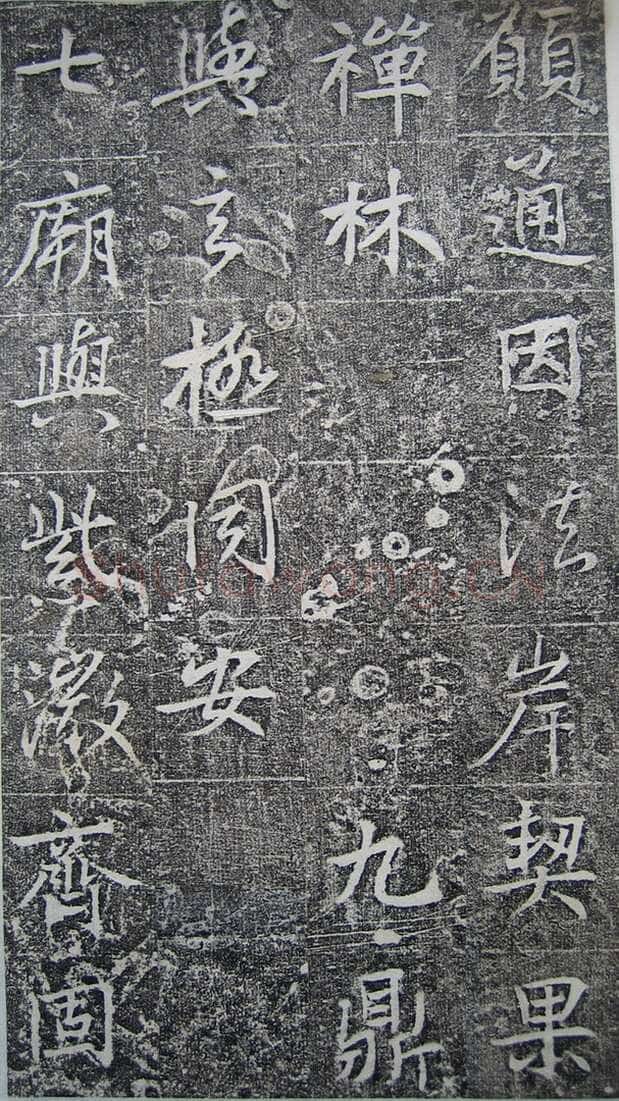 願通因法岸契果
禪林九鼎
與玄極同安
七廟與紫微齊固
shufawang.CN